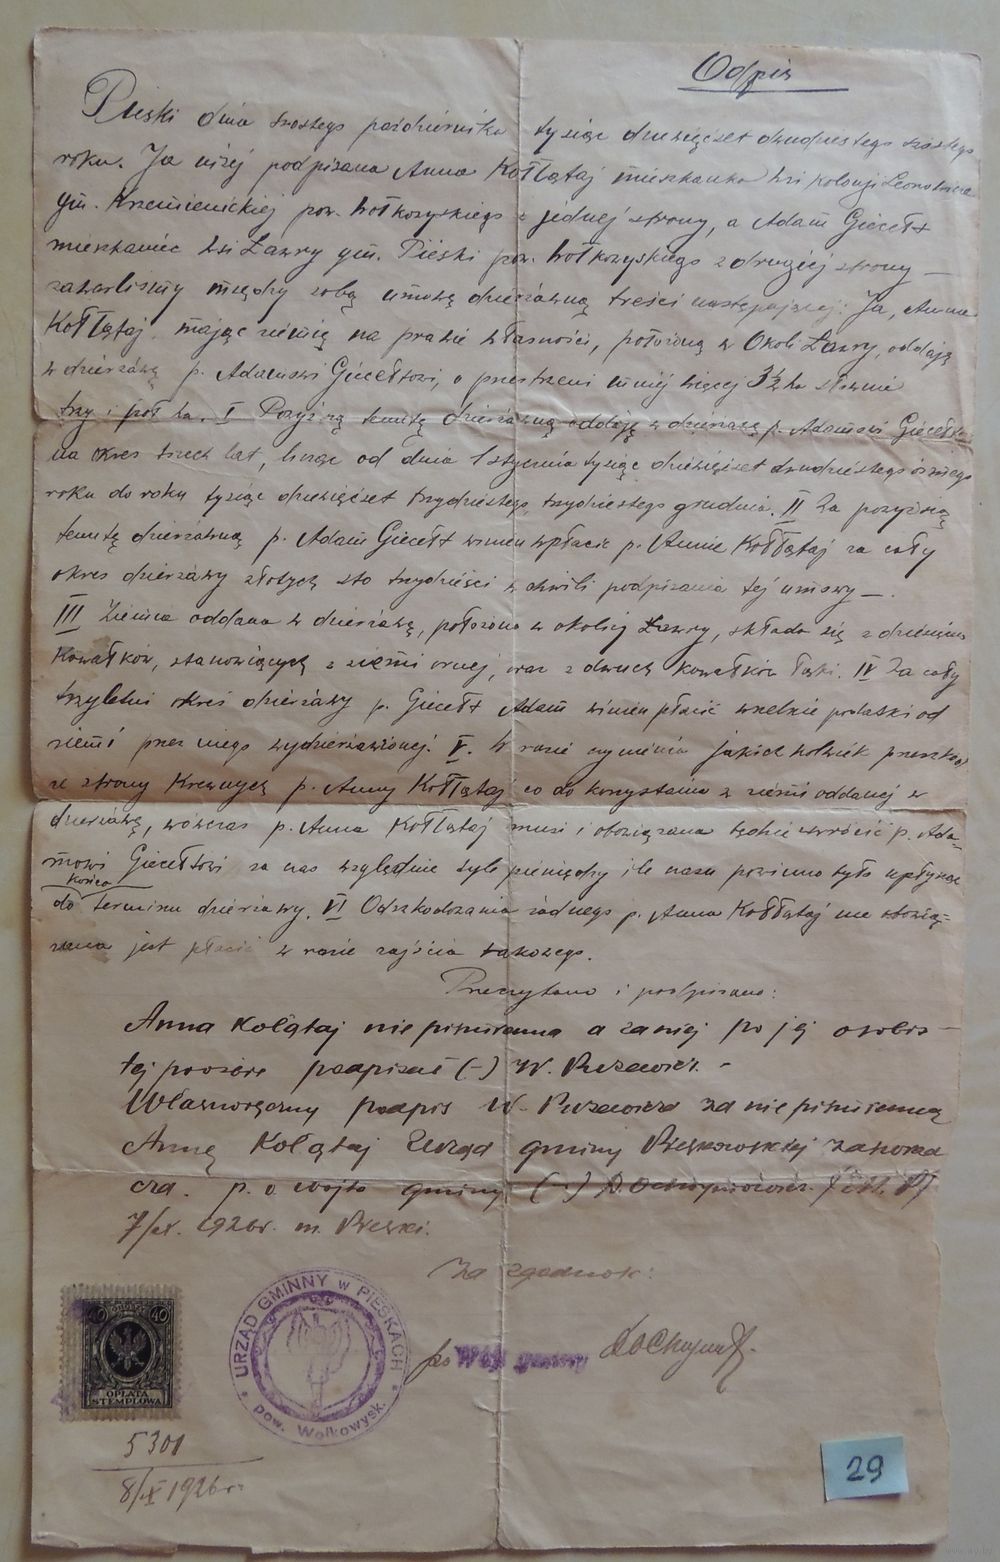 Odpis
Pieski dnia szóstego października tysiąc dziewięćset dwudziestego szóstego
roku. Ja niżej podpisana Anna Kołłątaj mieszkanka wsi kolonji
gm. Krzemienickiej pow. Wołkowyskiego z jednej strony, a Adam Giecełt
mieszkaniec wsi Ławry gm. Pieski pow. Wołkowyskiego z drugiej strony —
zawarliśmy między sobą umowę dzierżawną treści następującej: Ja, Anna
Kołłątaj, mając ziemię na prawie własności, położoną w Okoli Ławry, oddają
w dzierżawę p. Adamowi Giecełtowi, o przestrzeni mniej więcej 3½ ha słownie
trzy i pół ha. I Powyższą tenutę dzierżawną oddaję w dzierżawę p. Adamowi Giecełtowi
na okres trzech lat, licząc od dnia 1 stycznia tysiąc dziewięćset dwudziestego ósmego
roku do roku tysiąc dziewięćset trzydziestego, trzydziestego grudnia. II Za powyższą
tenutę dzierżawną p. Adam Giecełt winien wpłacić p. Annie Kołłątaj za cały
okres dzierżawy złotych sto trzydzieści w chwili podpisania tej umowy —.
III Ziemia oddana w dzierżawę, położona w okolicy Ławry, składa się z dziesięciu
kawałków, stanowiących z ziemi ornej, oraz z dwuch kawałków łąki. IV Za cały
trzyletni okres dzierżawy p. Giecełt Adam winien płacić wszelkie podatki od
ziemi przez niego wydzierżawionej. V. W razie czynienia jakichkolwiek przeszkód
ze strony Krewnych p. Anny Kołłątaj co do korzystania z ziemi oddanej w
dzierżawę, wówczas p. Anna Kołłątaj musi i obowiązana będzie zwrócić p. Ada-
mowi Giecełtowi za czas względnie tyle pieniędzy ile czasu powinno było upłynąć
końca
do terminu dzierżawy. VI Odszkodowania żadnego p. Anna Kołłątaj nie obowią=
zana jest płacić w razie zajścia takowego.
Przeczytano i podpisano:
Anna Kołątaj niepiśmienna a za niej po jej osobis-
tej prośbie podpisał (-) W.
Własnoręczny podpis W. za niepiśmienną
Annę Kołątaj Urząd gminy Pieskowskiej zaświad
cza. p. o. wójta gminy (-)
7/ 1926r. m. Pieski.
Za zgodność:
URZĄD GMINNY w PIESKACH
pow. Wołkowysk.
po Wójt gminy
40 40
OPŁATA
STEMPLOWA
5301
8/X 1926 r.
29